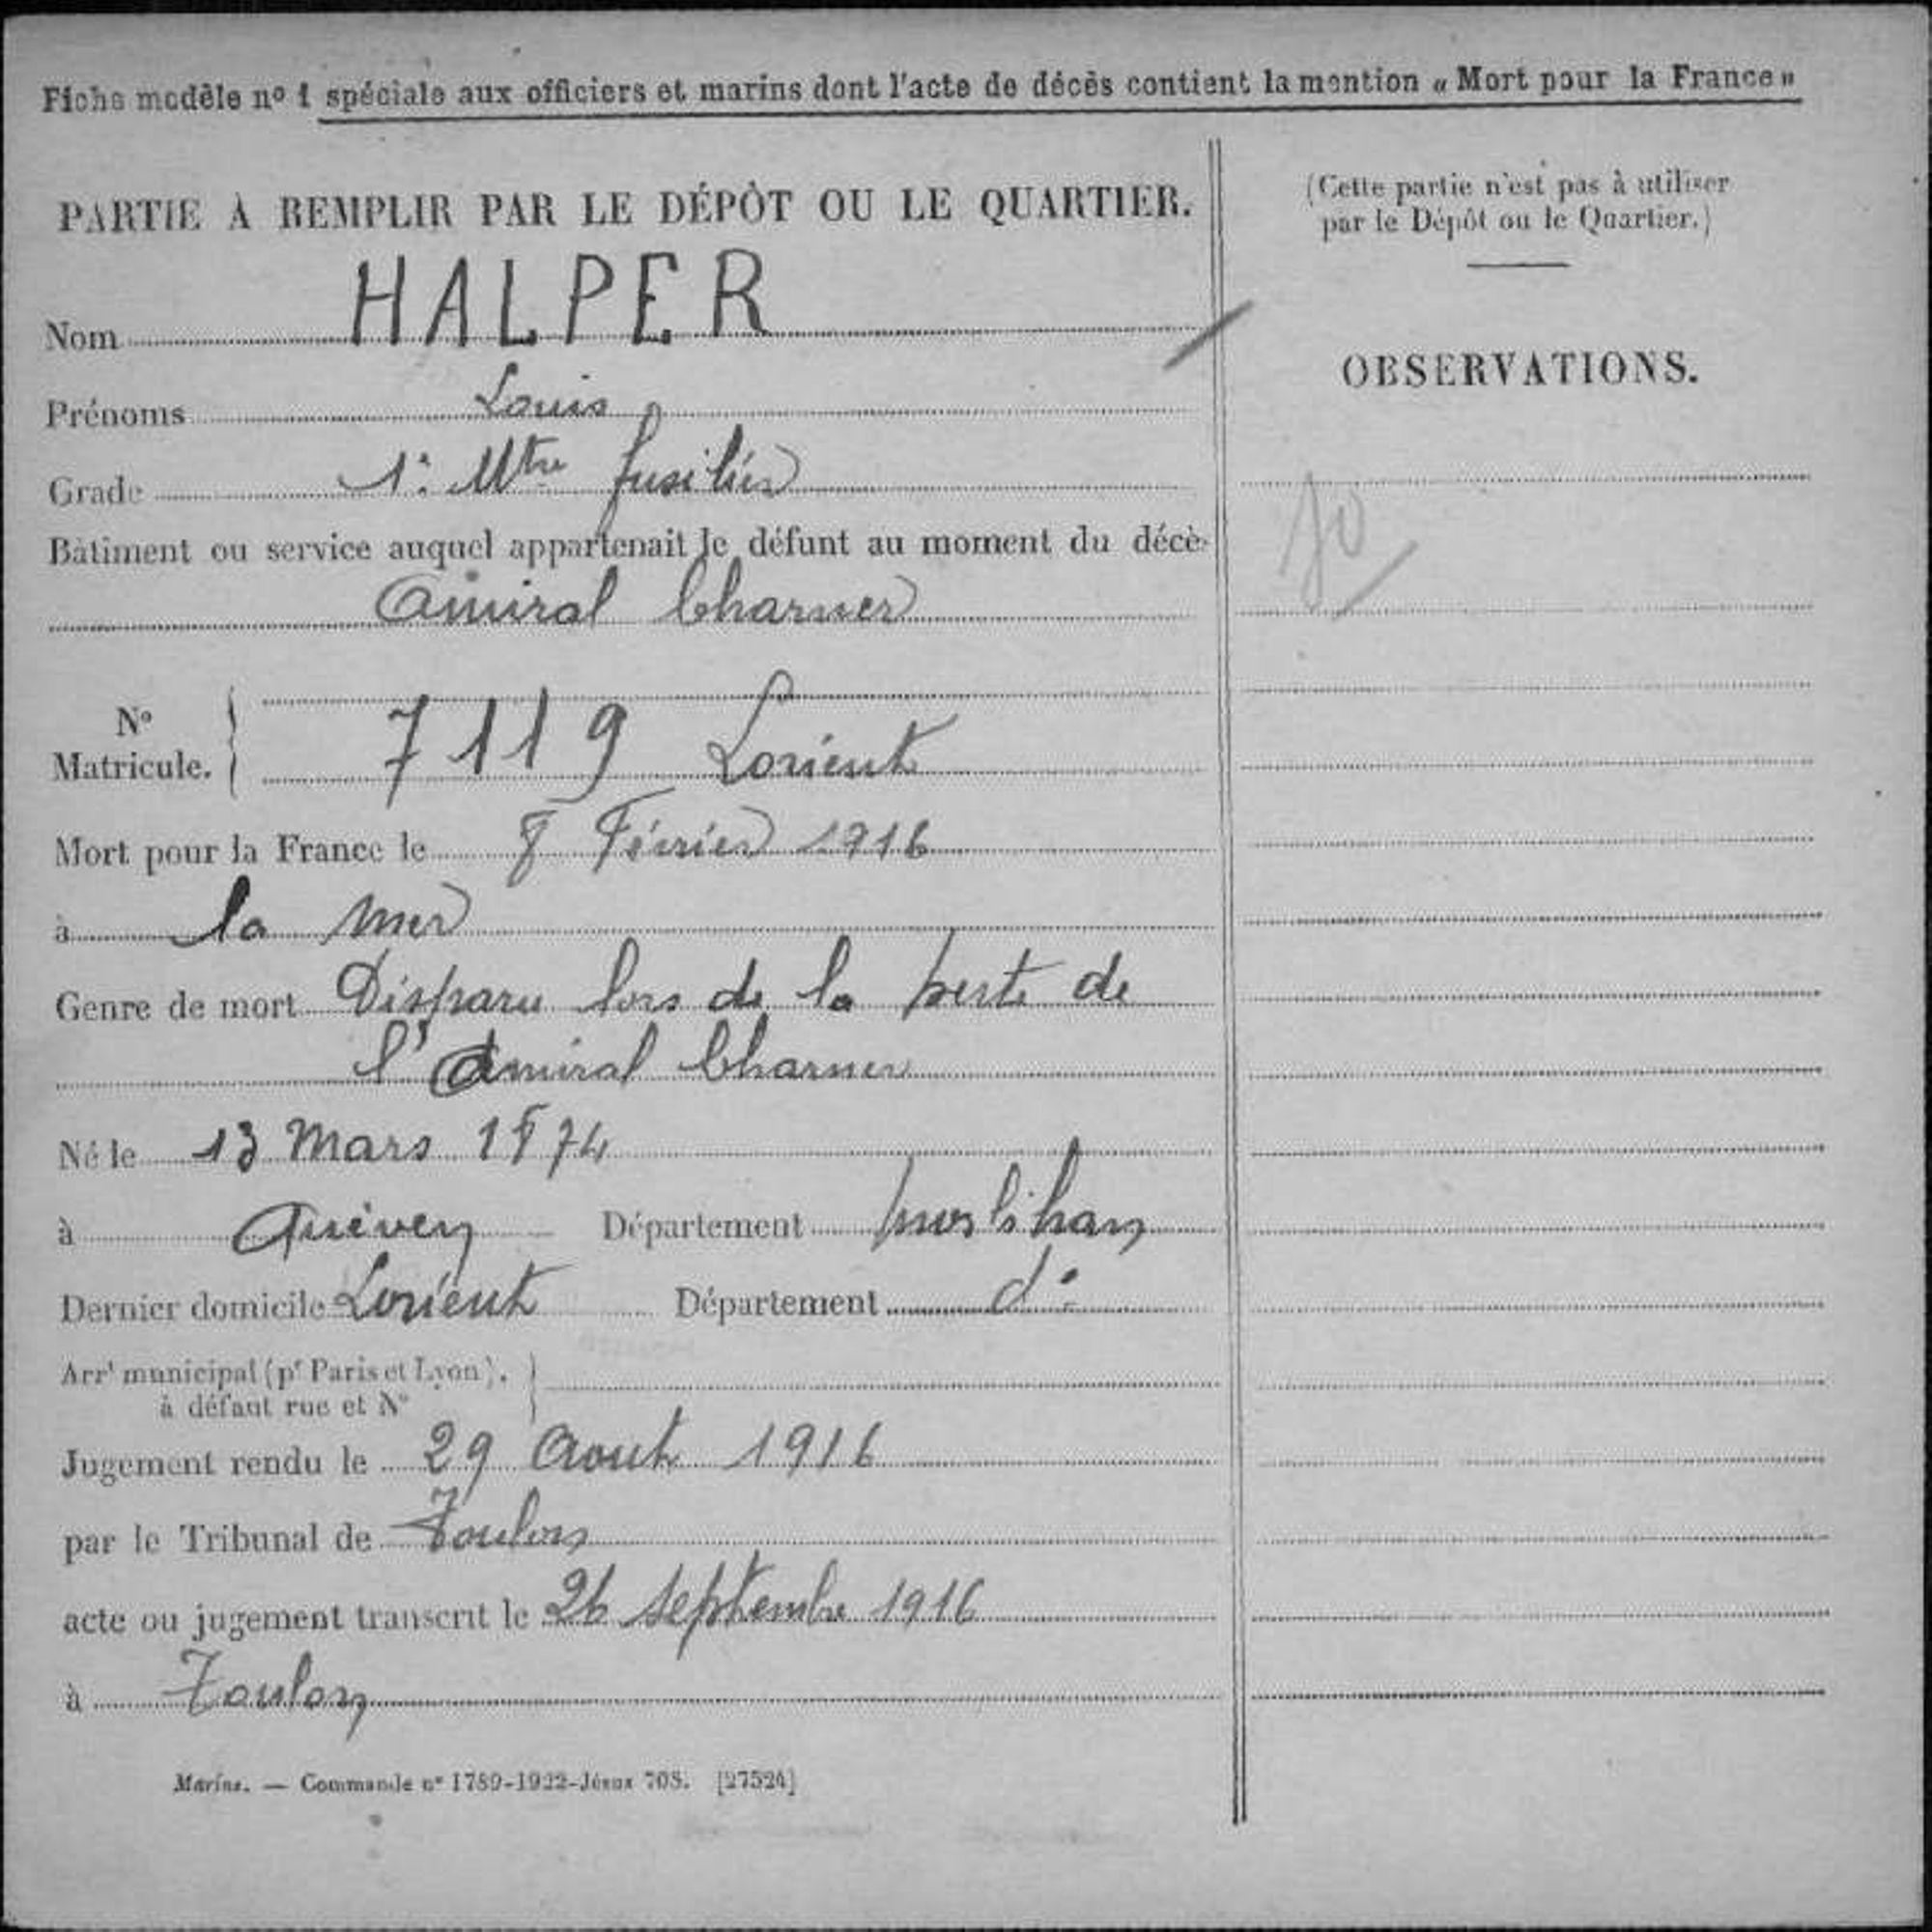 Fiche modèle nº 1 spéciale aux officiers et marins dont l'acte de décès contient la mention « Mort pour la France »
PARTIE À REMPLIR PAR LE DÉPÔT OU LE QUARTIER.
Nom HALPER
Prénoms Louis
Grade 1º Mtre fusilier
Bâtiment ou service auquel appartenait le défunt au moment du décès
Amiral Charner
Nº
Matricule. 7119 Lorient
Mort pour la France le 8 Février 1916
à la mer
Genre de mort Disparu lors de la perte de
l'Amiral Charner
Né le 13 Mars 1874
à Quéven Département Morbihan
Dernier domicile Lorient Département dº
Arrt municipal (pr Paris et Lyon),
à défaut rue et Nº
Jugement rendu le 29 Aout 1916
par le Tribunal de Toulon
acte ou jugement transcrit le 26 Septembre 1916
à Toulon
Marine. — Commande nº 1789-1922-Jésus 708. [27524]
(Cette partie n'est pas à utiliser
par le Dépôt ou le Quartier.)
OBSERVATIONS.